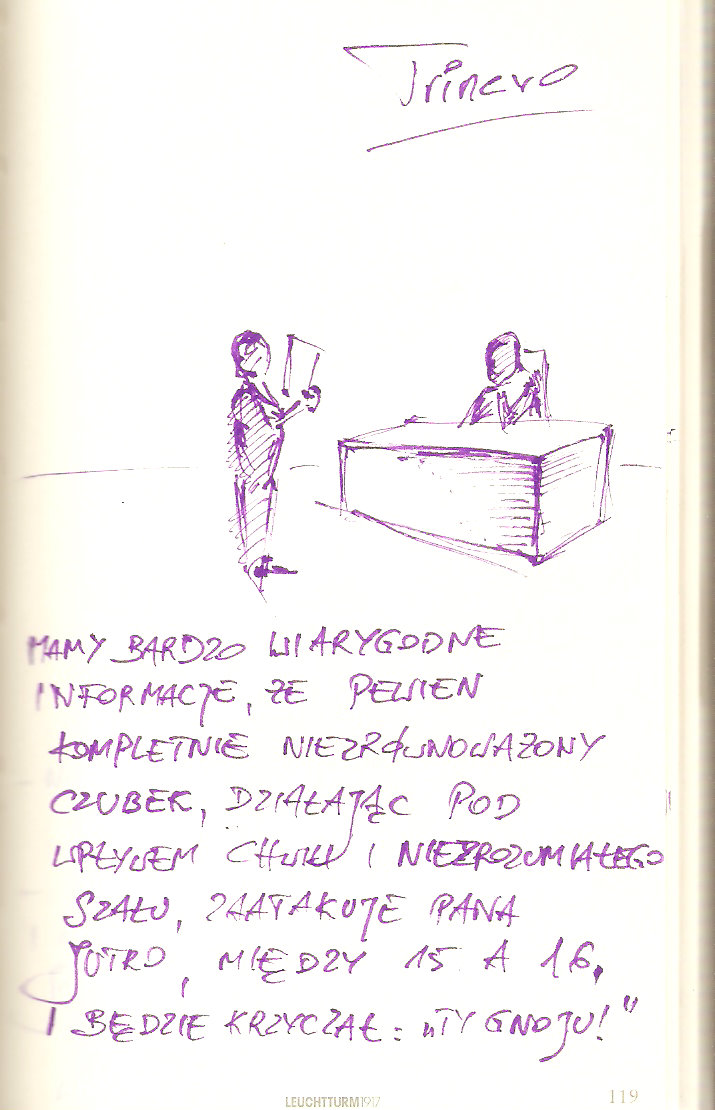 Trinero
MAMY BARDZO WIARYGODNE
INFORMACJE, ŻE PEWIEN
KOMPLETNIE NIEZRÓWNOWAŻONY
CZUBEK, DZIAŁAJĄC POD
WPŁYWEM CHWILI I NIEZROZUMIAŁEGO
SZAŁU, ZAATAKUJE PANA
JUTRO, MIĘDZY 15 A 16,
I BĘDZIE KRZYCZAŁ: „TY GNOJU!”
LEUCHTTURM1917
119